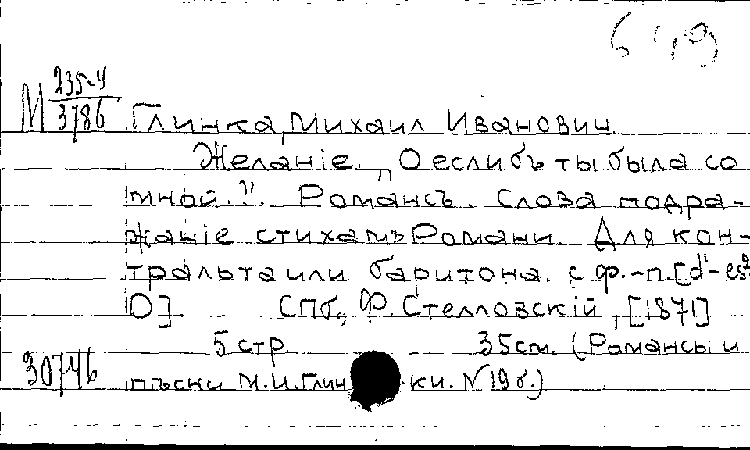 М 235-4/3786
Глинка, Михаил Иванович.
Желанiе. „О если бъ ты была со
мной." Романсъ. Слова подра-
жанiе стихамъ Романи. Для кон-
тральта или баритона с ф.-п. [d'-es²
О]. СПб., Ф. Стелловскiй, [1871]
5 стр. 35 см. (Романсы и
30746 пѣсни М. И. Глин ки. N 19 б.)